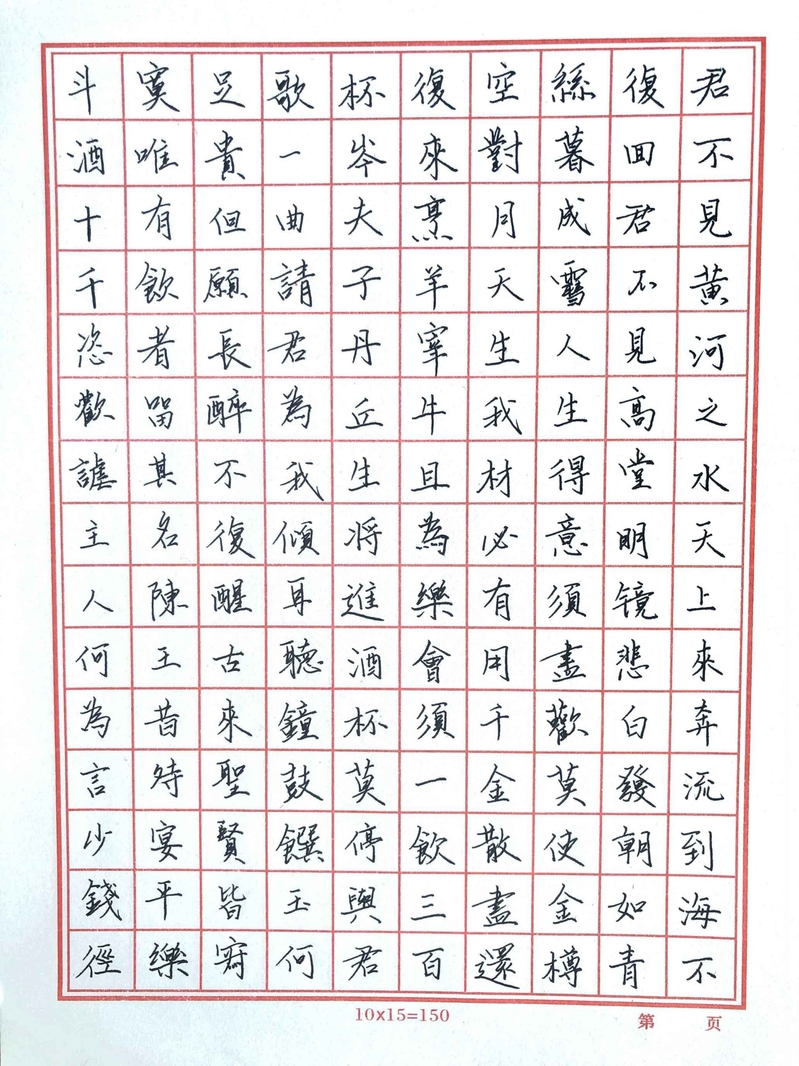 君不見黃河之水天上來奔流到海不
復回君不見高堂明镜悲白發朝如青
絲暮成雪人生得意須盡歡莫使金樽
空對月天生我材必有用千金散盡還
復來烹羊宰牛且為樂會須一飲三百
杯岑夫子丹丘生将進酒杯莫停與君
歌一曲請君為我傾耳聽鐘鼓饌玉何
足貴但願長醉不復醒古來聖賢皆寂
寞唯有飲者留其名陳王昔時宴平樂
斗酒十千恣歡謔主人何為言少錢徑
10x15=150
第 页